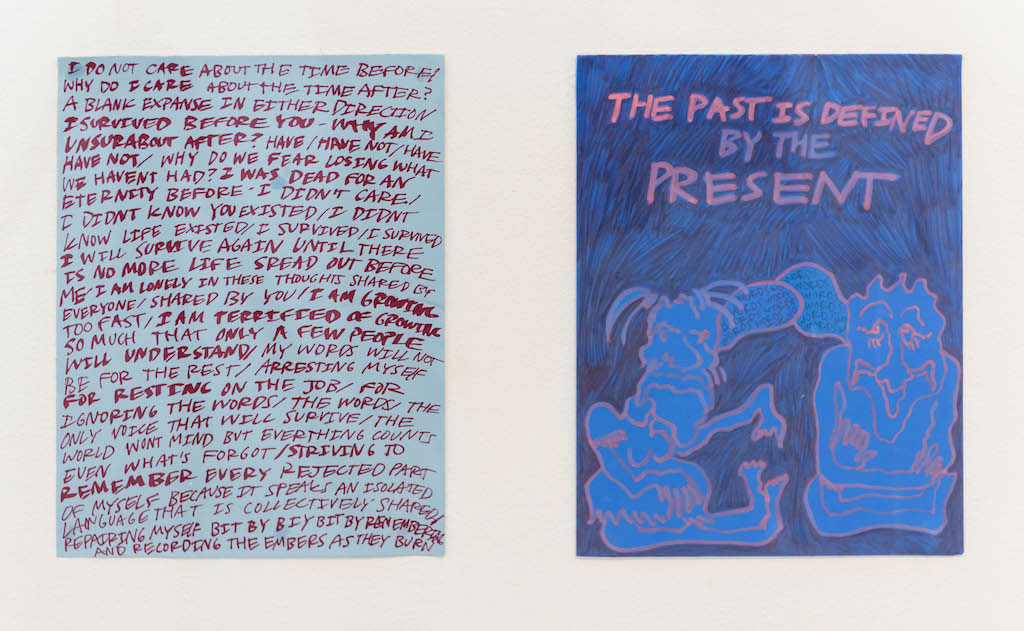 I DO NOT CARE ABOUT THE TIME BEFORE/
WHY DO I CARE ABOUT THE TIME AFTER?
A BLANK EXPANSE IN EITHER DIRECTION
I SURVIVED BEFORE YOU - WHY AM I
UNSURABOUT AFTER? HAVE/HAVE NOT/HAVE
HAVE NOT/ WHY DO WE FEAR LOSING WHAT
WE HAVENT HAD? I WAS DEAD FOR AN
ETERNITY BEFORE - I DIDN'T CARE/
I DIDNT KNOW YOU EXISTED/I DIDNT
KNOW LIFE EXISTED/I SURVIVED/I SURVIVED
I WILL SURVIVE AGAIN UNTIL THERE
IS NO MORE LIFE SPREAD OUT BEFORE
ME/I AM LONELY IN THESE THOUGHTS SHARED BY
EVERYONE/SHARED BY YOU/I AM GROWING
TOO FAST/I AM TERRIFIED OF GROWING
SO MUCH THAT ONLY A FEW PEOPLE
WILL UNDERSTAND/ MY WORDS WILL NOT
BE FOR THE REST/ ARRESTING MYSELF
FOR RESTING ON THE JOB/ FOR
IGNORING THE WORDS/ THE WORDS, THE
ONLY VOICE THAT WILL SURVIVE/THE
WORLD WONT MIND BUT EVERTHING COUNTS
EVEN WHAT'S FORGOT/STRIVING TO
REMEMBER EVERY REJECTED PART
OF MYSELF BECAUSE IT SPEAKS AN ISOLATED
LANGUAGE THAT IS COLLECTIVELY SHARED/
REPAIRING MYSELF BIT BY BIY BIT BY
AND RECORDING THE EMBERS AS THEY BURN
THE PAST IS DEFINED
BY THE
PRESENT
WORDS
WORDS
WORDS